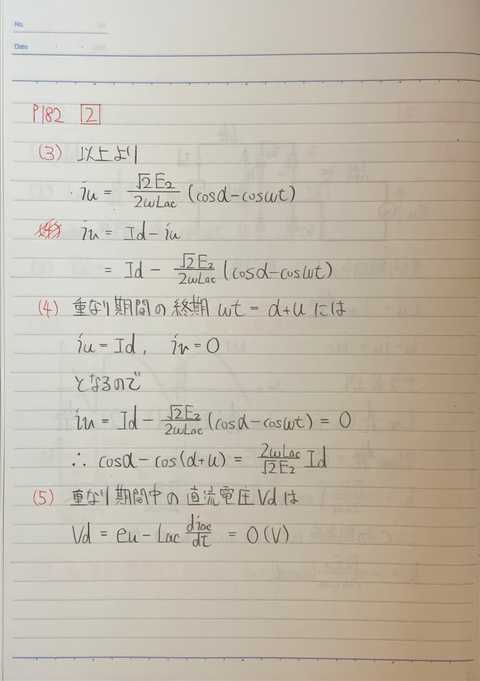 No.
Date
P182 2
(3) 以上より
iu = √2E2/2ωLac (cosα-cosωt)
iv = Id-iu
= Id - √2E2/2ωLac (cosα-cosωt)
(4) 重なり期間の終期 ωt = α+u には
iu = Id, iv = 0
となるので
iv = Id - √2E2/2ωLac (cosα-cosωt) = 0
∴ cosα-cos(α+u) = 2ωLac/√2E2 Id
(5) 重なり期間中の直流電圧Vdは
Vd = eu - Lac diac/dt = 0(V)